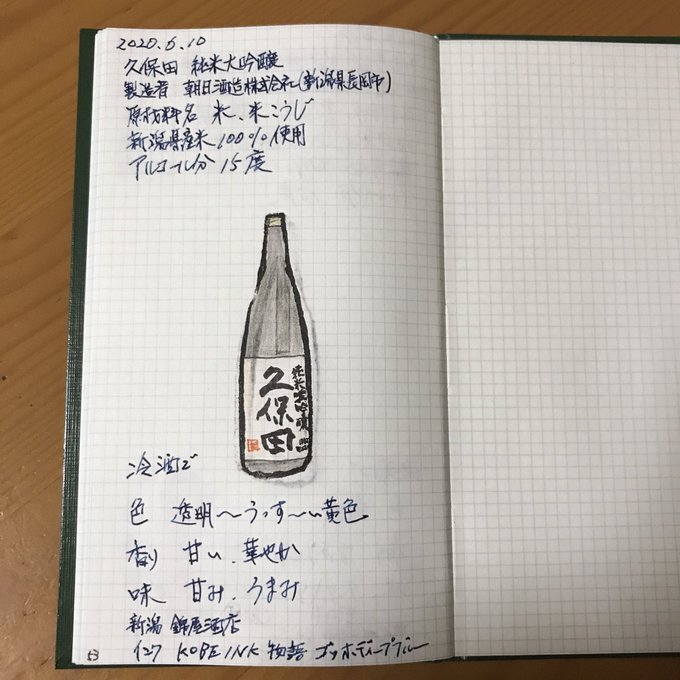 2020.6.10
久保田 純米大吟醸
製造者 朝日酒造株式会社(新潟県長岡市)
原材料名 米、米こうじ
新潟県産米100%使用
アルコール分 15度
純米大吟醸
久保田
冷酒で
色 透明〜うっす〜い黄色
香り 甘い、華やか
味 甘み、うまみ
新潟 錦屋酒店
インク KOBE INK 物語 ゴッホディープブルー